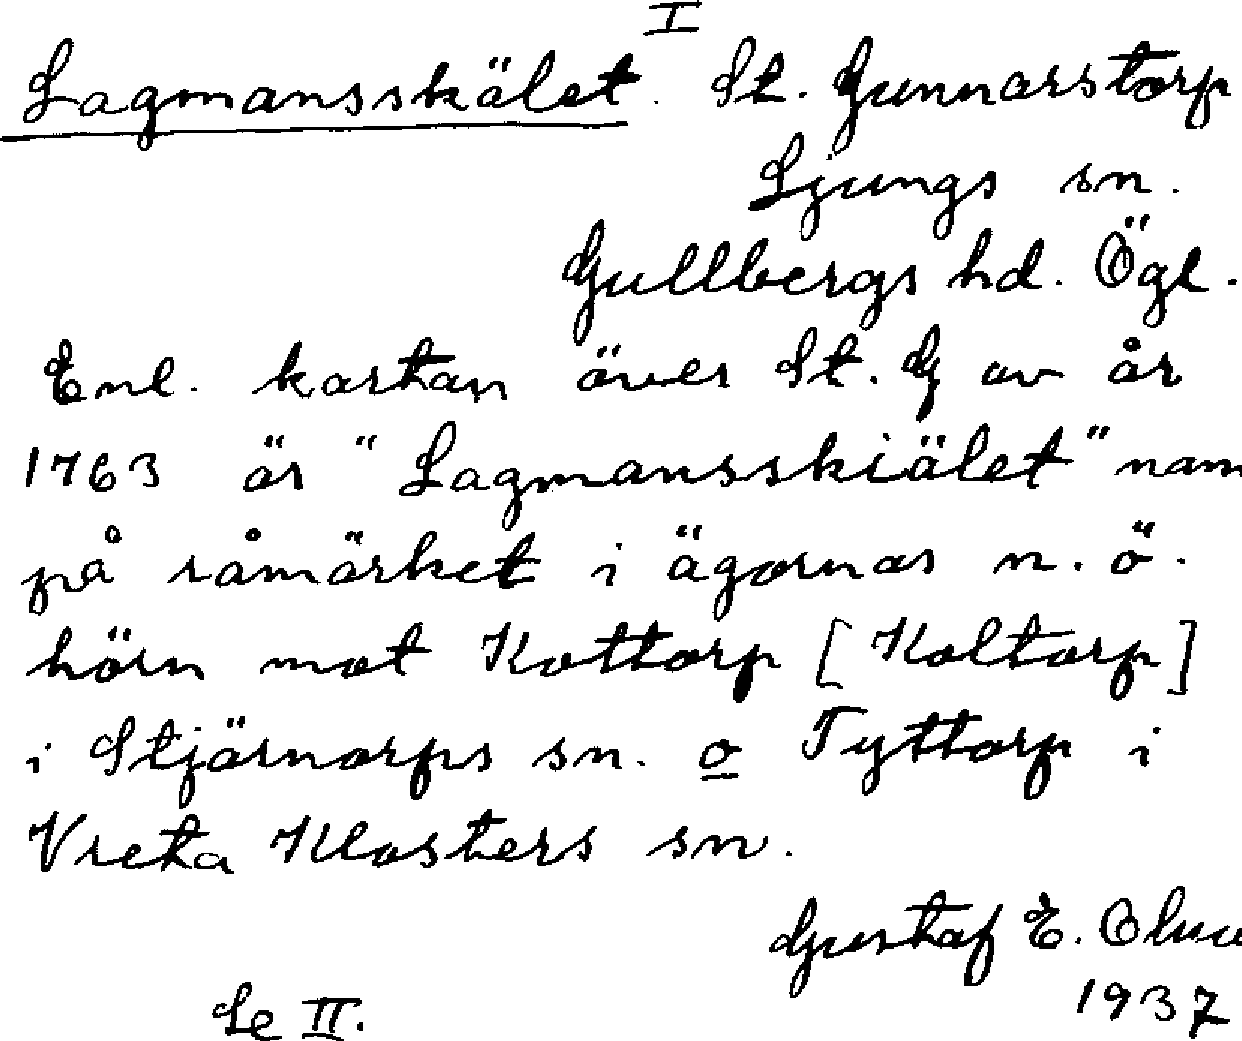 I
Lagmansskälet. St. Gunnarstorp
Ljungs sn.
Gullbergs hd. Ögl.
Enl. kartan över St. G av år
1763 är "Lagmansskiälet" nam
på råmärket i ägornas n. ö.
hörn mot Kottorp [Koltorp]
i Stjärnorps sn. o Tyttorp i
Vreta Klosters sn.
Gustaf E.
1937
Se II.